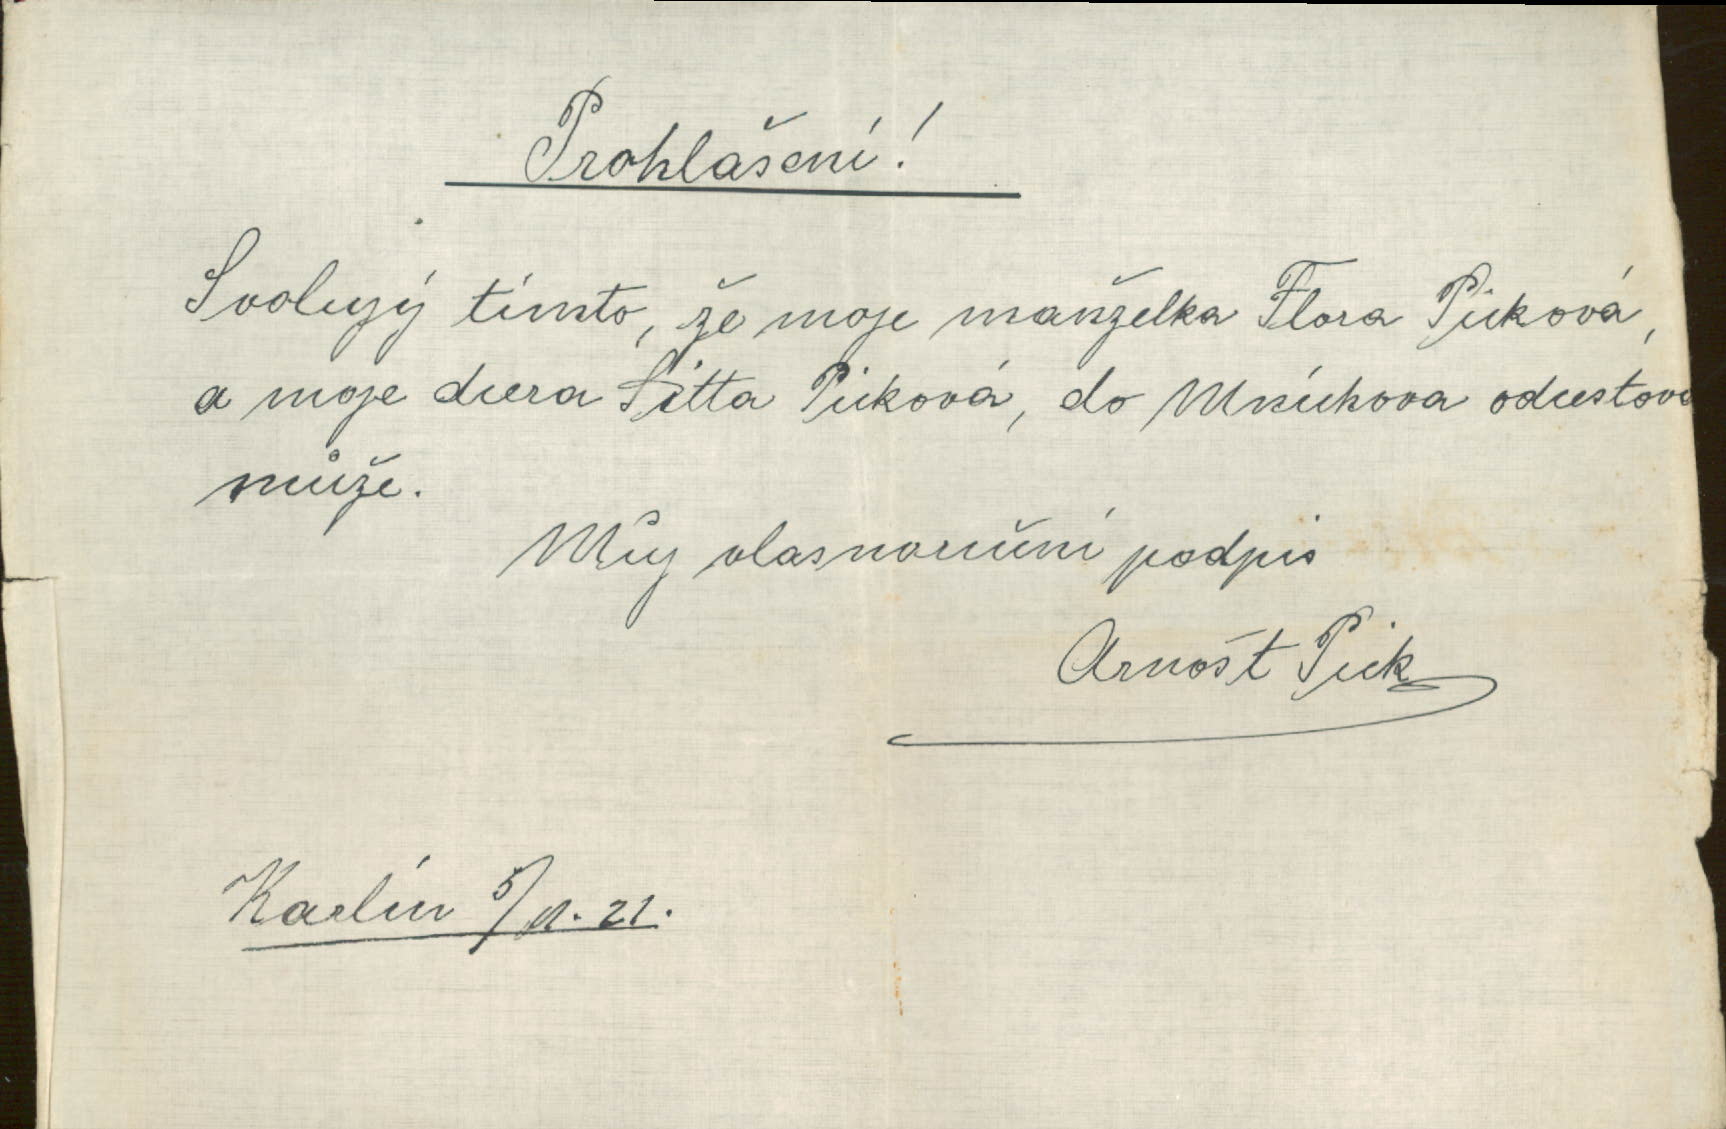 Prohlášení!
Svoluji tímto, že moje manželka Flora Picková,
a moje dcera Litta Picková, do Mnichova odcestova
může.
Můj vlasnoruční podpis
Arnošt Pick
Karlín 5/11. 21.